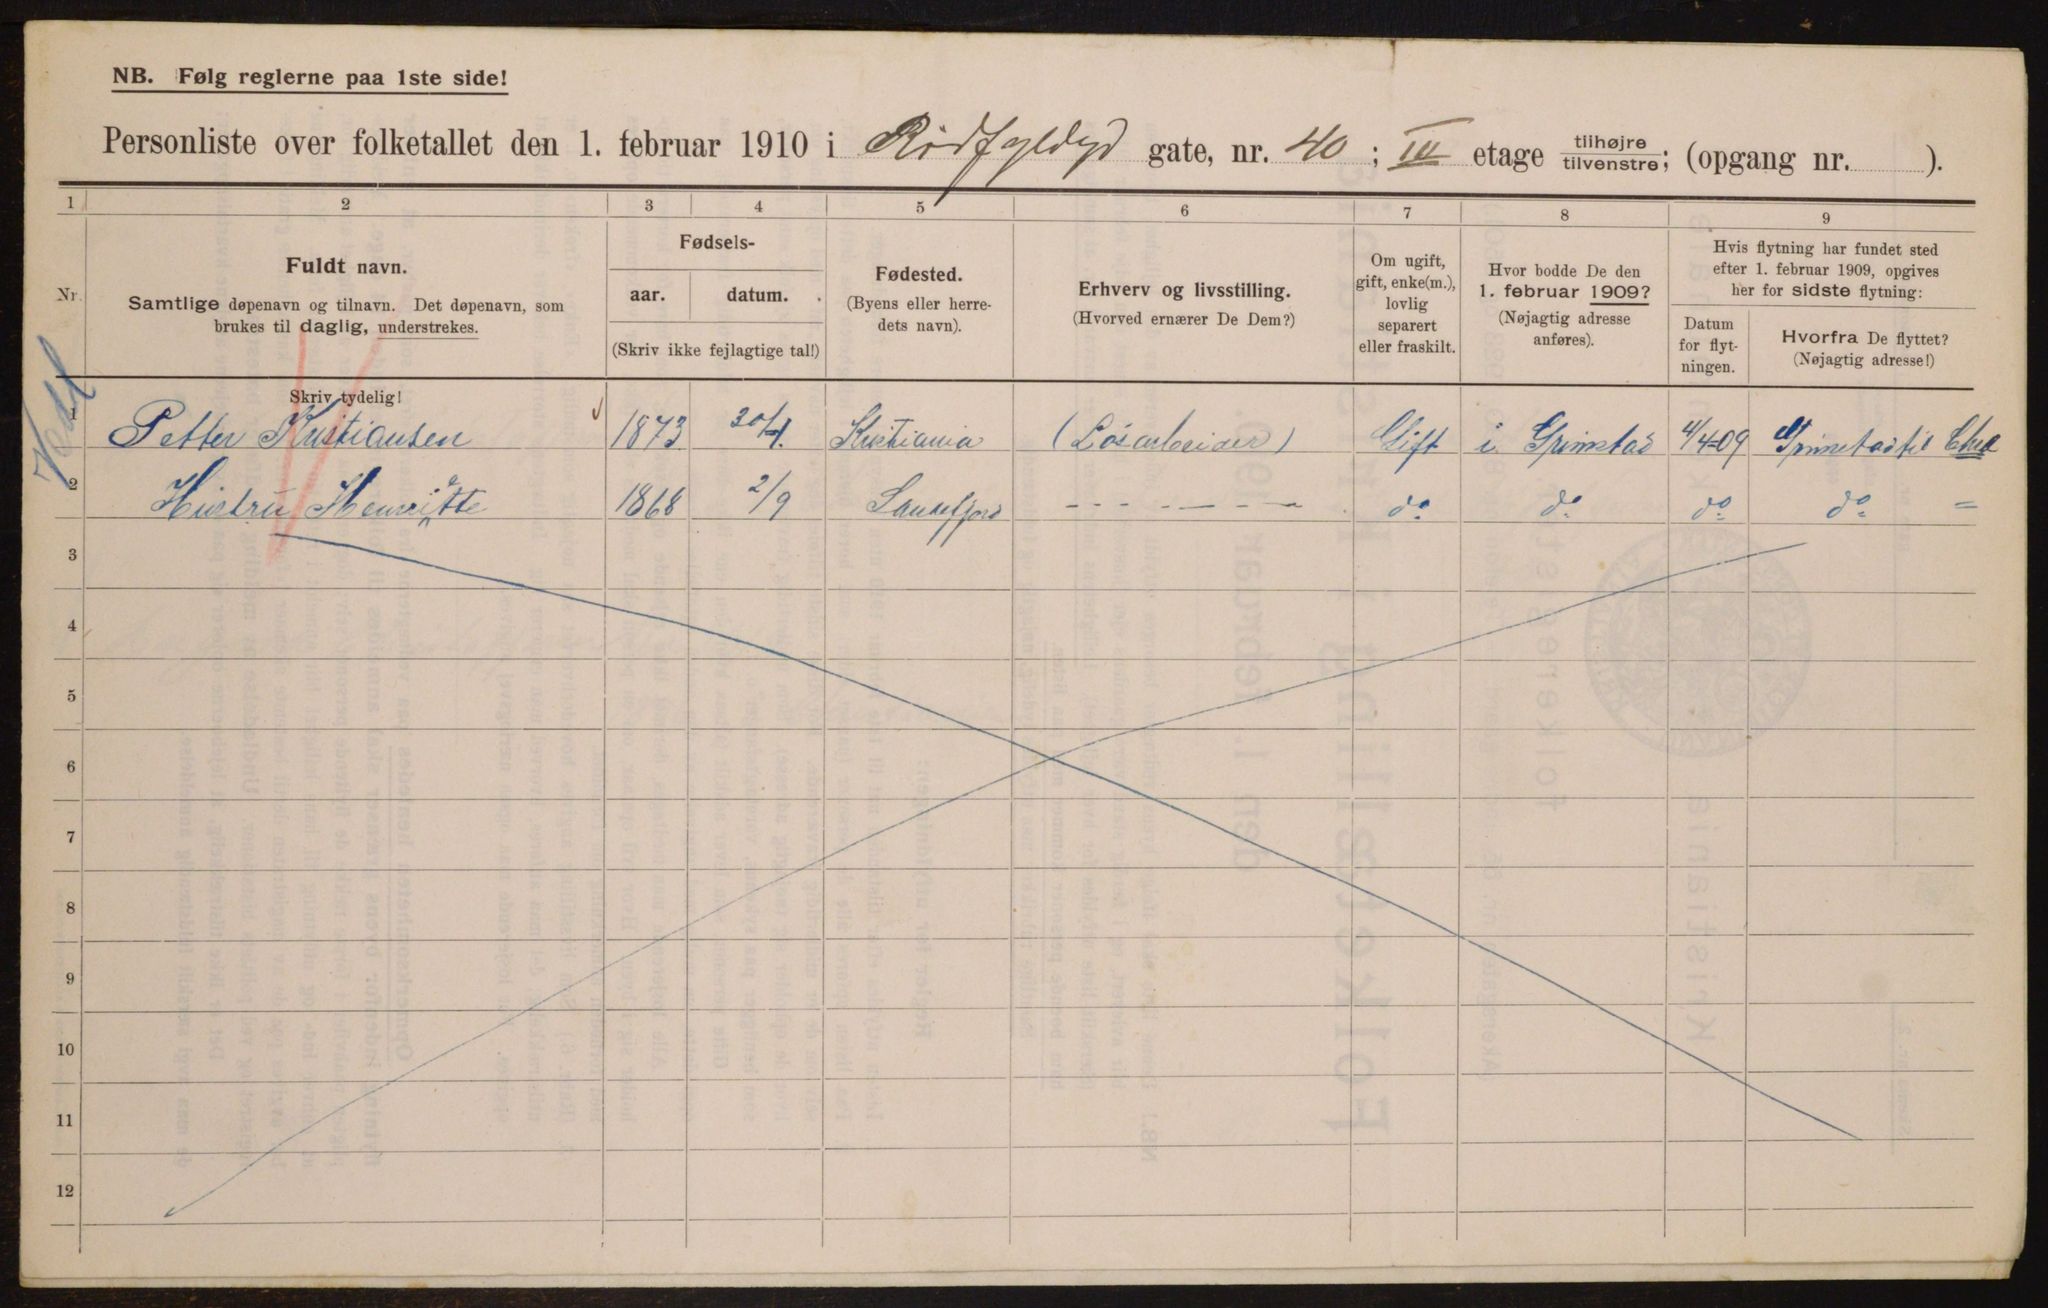 NB. Følg reglerne paa 1ste side!
Personliste over folketallet den 1. februar 1910 i Rødfyldgd gate, nr. 40; III etage tilhøjre/tilvenstre; (opgang nr. ).
1 2 3 4 5 6 7 8 9
Nr.
Fuldt navn.
Samtlige døpenavn og tilnavn. Det døpenavn, som
brukes til daglig, understrekes.
Skriv tydelig!
Fødsels-
aar. datum.
(Skriv ikke fejlagtige tal!)
Fødested.
(Byens eller herre-
dets navn).
Erhverv og livsstilling.
(Hvorved ernærer De Dem?)
Om ugift,
gift, enke(m.),
lovlig
separert
eller fraskilt.
Hvor bodde De den
1. februar 1909?
(Nøjagtig adresse
anføres).
Hvis flytning har fundet sted
efter 1. februar 1909, opgives
her for sidste flytning:
Datum
for flyt-
ningen.
Hvorfra De flyttet?
(Nøjagtig adresse!)
1 Petter Kristiansen 1873 30/1. Kristiania (Løsarbeider) Gift i Grimstad 4/4-09 Grimstad til Chra
2 Hustru Henriette 1868 2/9 Sandefjord - - - - - - - do do do do =
3
4
5
6
7
8
9
10
11
12